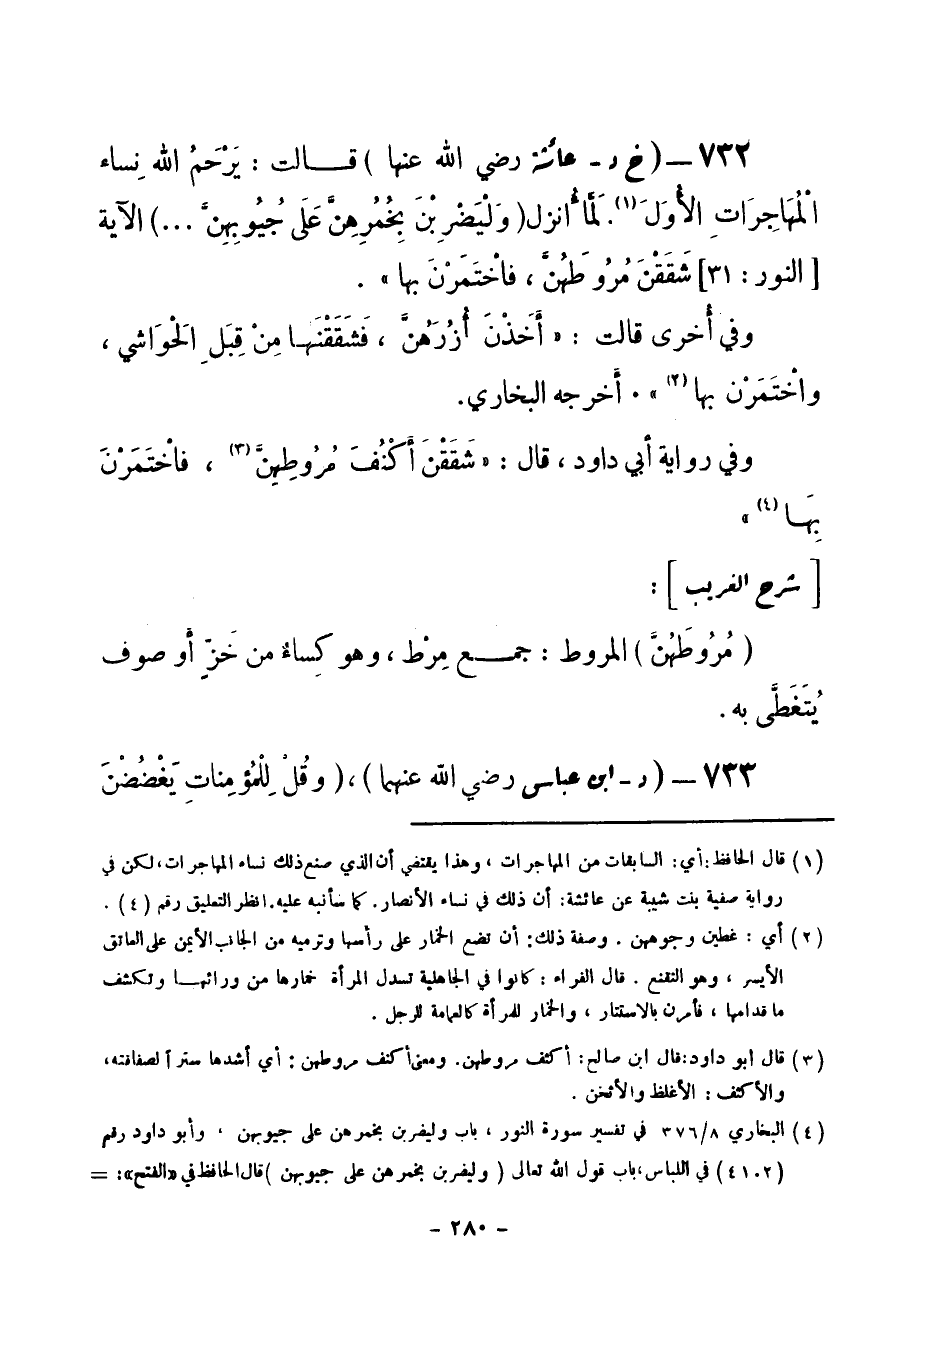 ٧٣٢ – ( خ د - عائشة رضي الله عنها ) قـــالت : يَرْحَمُ الله نِساء
الْمُهَاجِرَاتِ الأُوَلَ(١). لَمَّا أُنزل ( وَلْيَضْرِبْنَ بِخُمُرِهِنَّ عَلَى جُيُوبِهِنَّ ...) الآية
[ النور : ٣١] شَقَقْنَ مُرُوطَهُنَّ ، فاخْتَمَرْنَ بها » .
وفي أُخرى قالت : « أَخَذْنَ أُزُرَهُنَّ ، فَشَقَقْنَهَا مِنْ قِبَلِ الْحَوَاشي ،
واخْتَمَرْن بها (٢) » . أخرجه البخاري.
وفي رواية أبي داود ، قال : « شَقَقْنَ أَكْنُفَ مُرُوطِهِنَّ(٣) ، فاخْتَمَرْنَ
بِهَا (٤) »
[ شرح الغريب ] :
( مُرُوطَهُنَّ ) المروط : جمـــع مِرْط ، وهو كِساءٌ من خَزٍّ أو صوف
يُتَغَطَّى به .
٧٣٣ – ( د - ابن عباس رضي الله عنهما ) ، ( وقُلْ لِلْمُؤمِناتِ يَغْضُضْنَ
(١) قال الحافظ : أي : السابقات من المهاجرات ، وهذا يقتضي أن الذي صنع ذلك نساء المهاجرات ، لكن في
رواية صفية بنت شيبة عن عائشة : أن ذلك في نساء الأنصار . كما سأنبه عليه . انظر التعليق رقم (٤) .
(٢) أي : غطين وجوههن . وصفة ذلك : أن تضع الخمار على رأسها وترميه من الجانب الأيمن على العاتق
الأيسر ، وهو التقنع . قال الفراء : كانوا في الجاهلية تسدل المرأة خمارها من ورائهــا وتكشف
ما قدامها ، فأمرن بالاستتار ، والخمار للمرأة كالعمامة للرجل .
(٣) قال ابو داود : قال ابن صالح : أكثف مروطهن . ومعنى أكنف مروطهن : أي أشدها ستراً لصفاقته ،
والأكثف : الأغلظ والأثخن .
(٤) البخاري ٣٧٦/٨ في تفسير سورة النور ، باب وليضربن بخمرهن على جيوبهن ، وأبو داود رقم
(٤١٠٢) في اللباس ، باب قول الله تعالى ( وليضربن بخمرهن على جيوبهن ) قال الحافظ في «الفتح» : =
- ٢٨٠ -